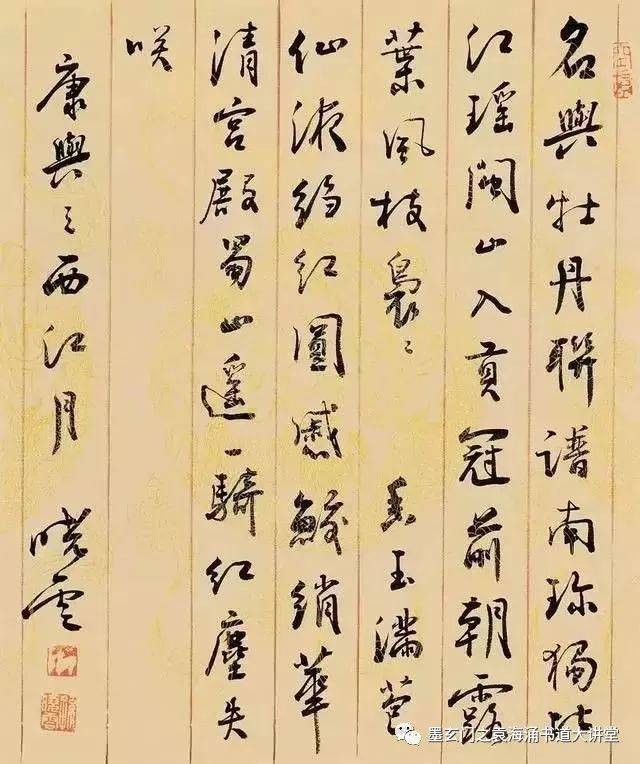 名與牡丹聯譜南珎獨比
江瑶閩山入貢冠前朝露
葉風枝裊〻 香玉滿苞
仙液絳紅圓蹙鮫綃華
清宮殿蜀山遥一騎紅塵失
咲
康與之西江月 曉雲
墨玄门之袁海涌书道大讲堂